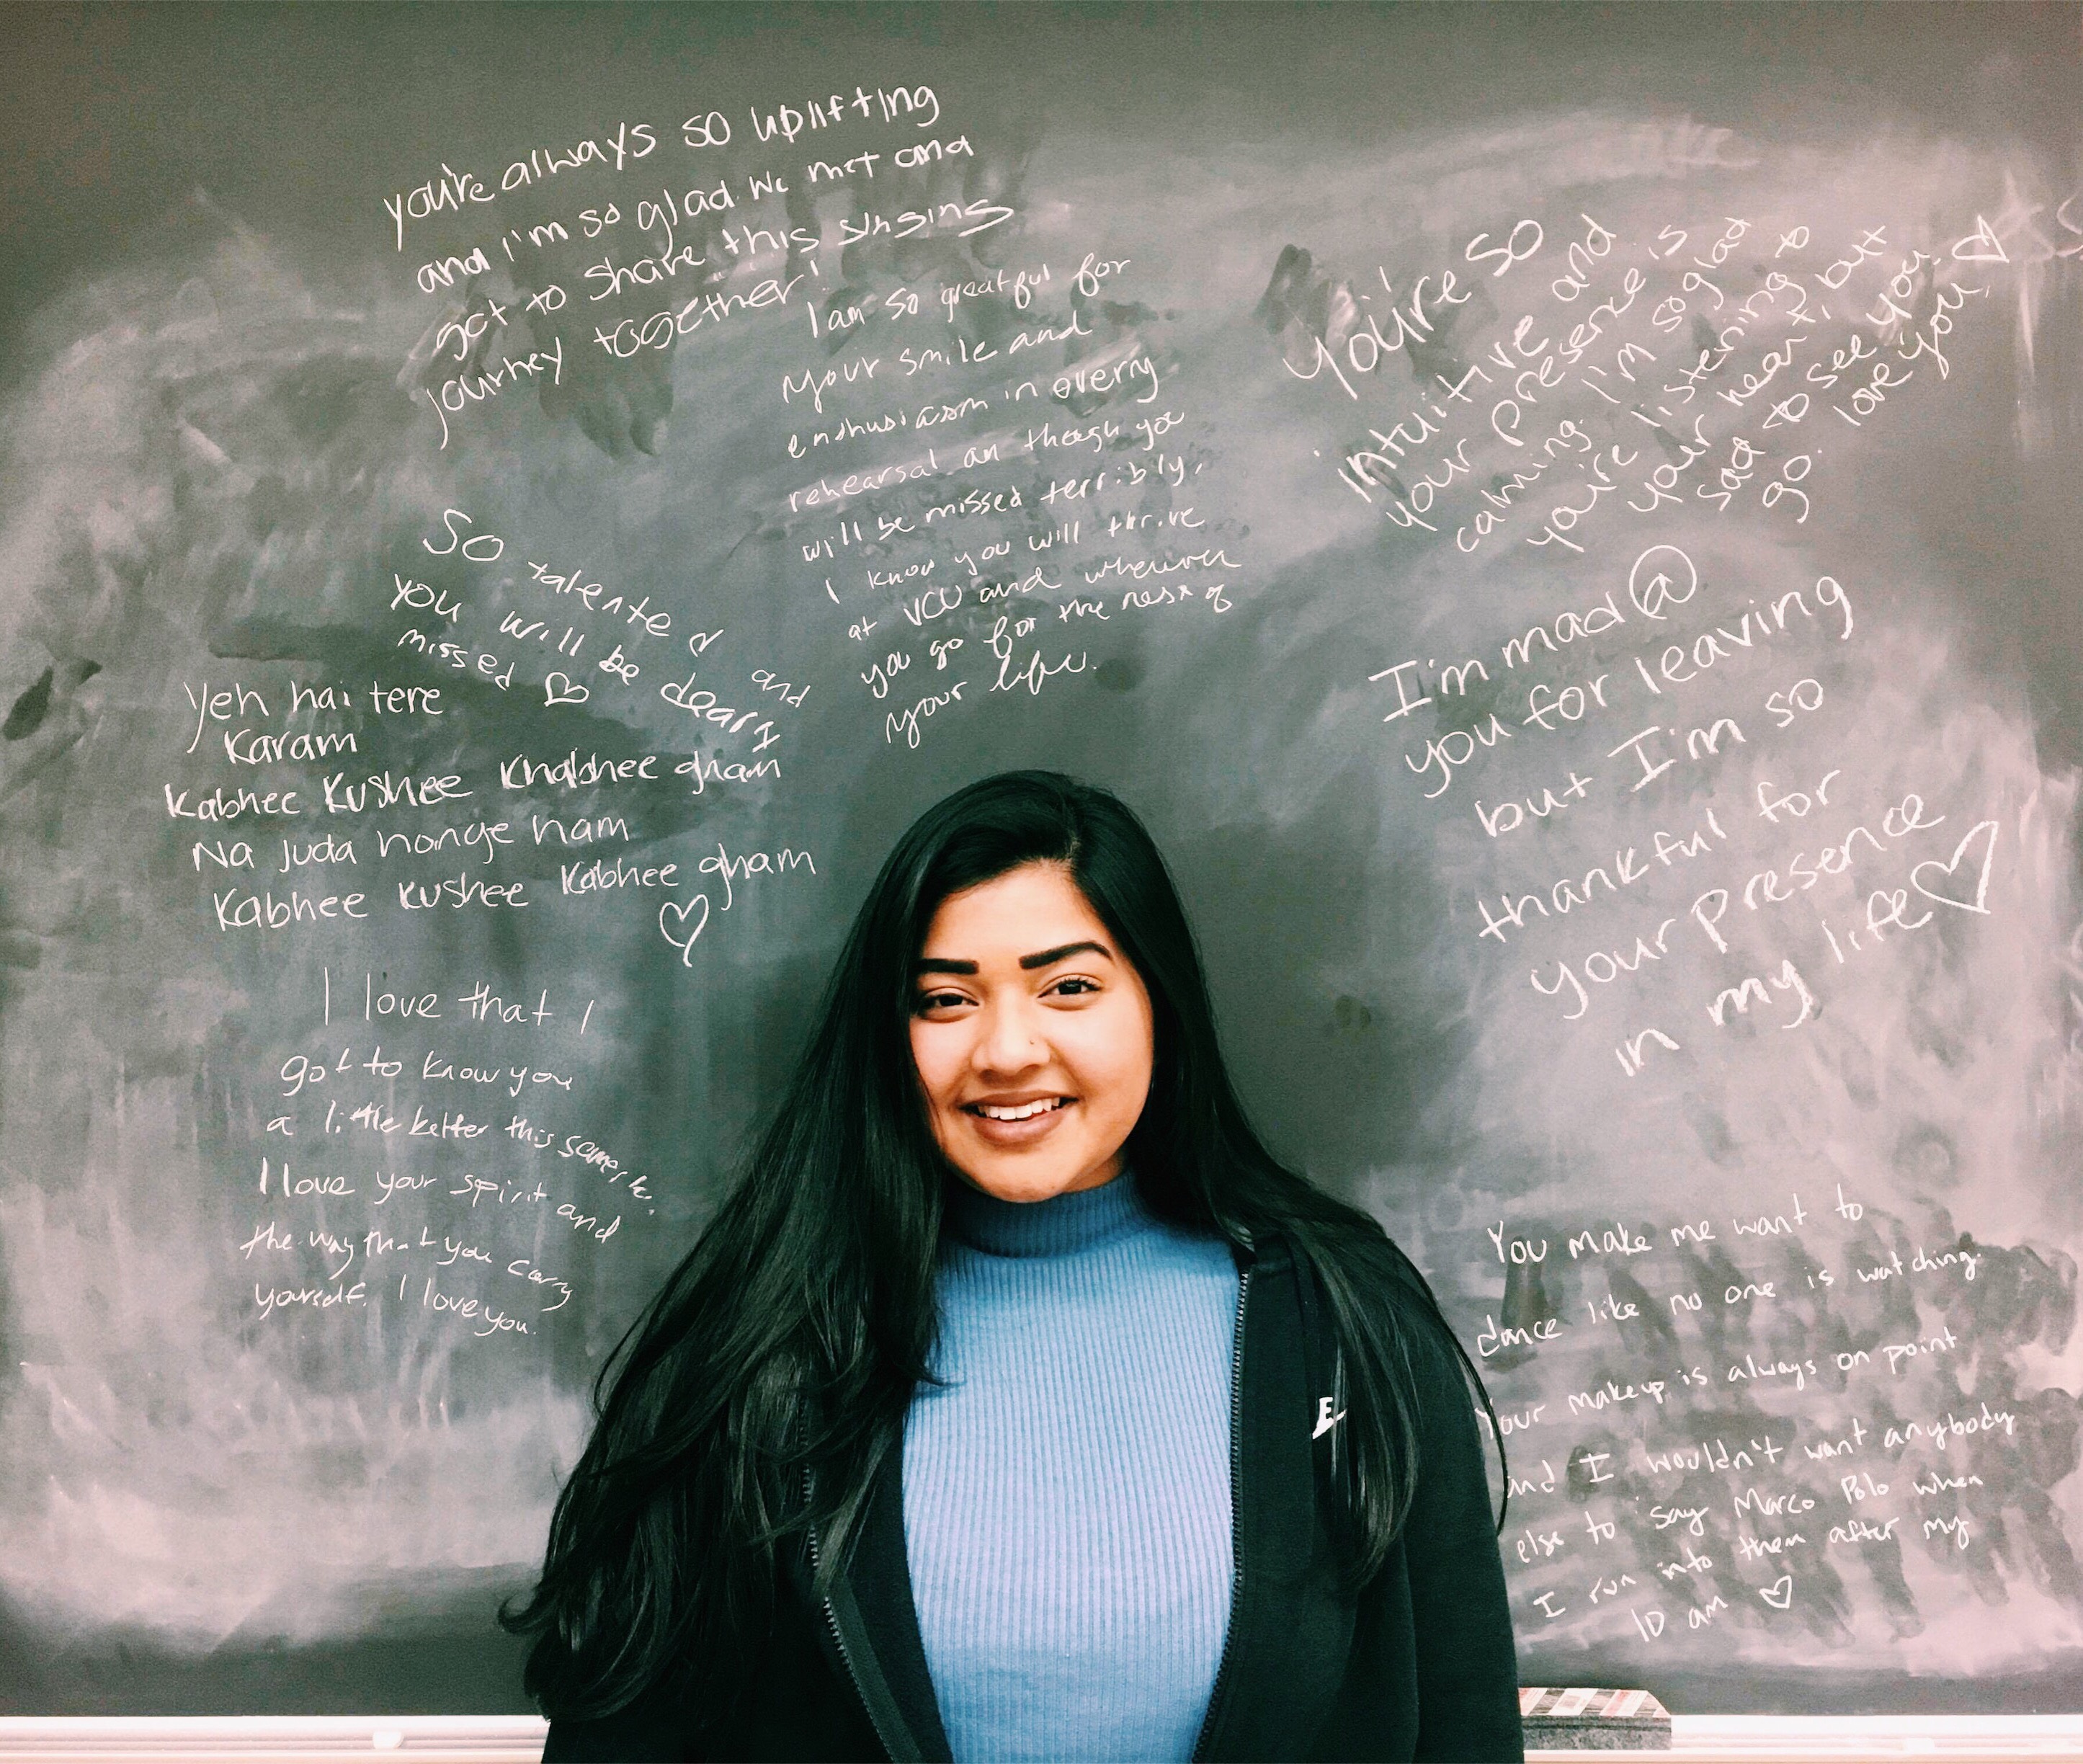 you're always so uplifting
and I'm so glad we met and
got to share this singing
journey together!
I am so greatful for
your smile and
enthusiasm in every
rehearsal an though you
will be missed terribly,
I know you will thrive
at VCU and wherever
you go for the rest of
your life.
You're so
intuitive and
your presence is
calming. I'm so glad
you're listening to
your heart, but
sad to see you
go. love you!
So talented and
You will be dearly
missed
I'm mad @
you for leaving
but I'm so
thankful for
your presence
in my life
Yeh hai tere
Karam
Kabhee Kushee Khabhee gham
Na juda honge ham
Kabhee Kushee Kabhee gham
I love that I
got to know you
a little better this
I love your spirit and
the way that you carry
yourself. I love you.
You make me want to
dance like no one is watching.
Your makeup is always on point
and I wouldn't want anybody
else to say Marco Polo when
I run into them after my
10 am